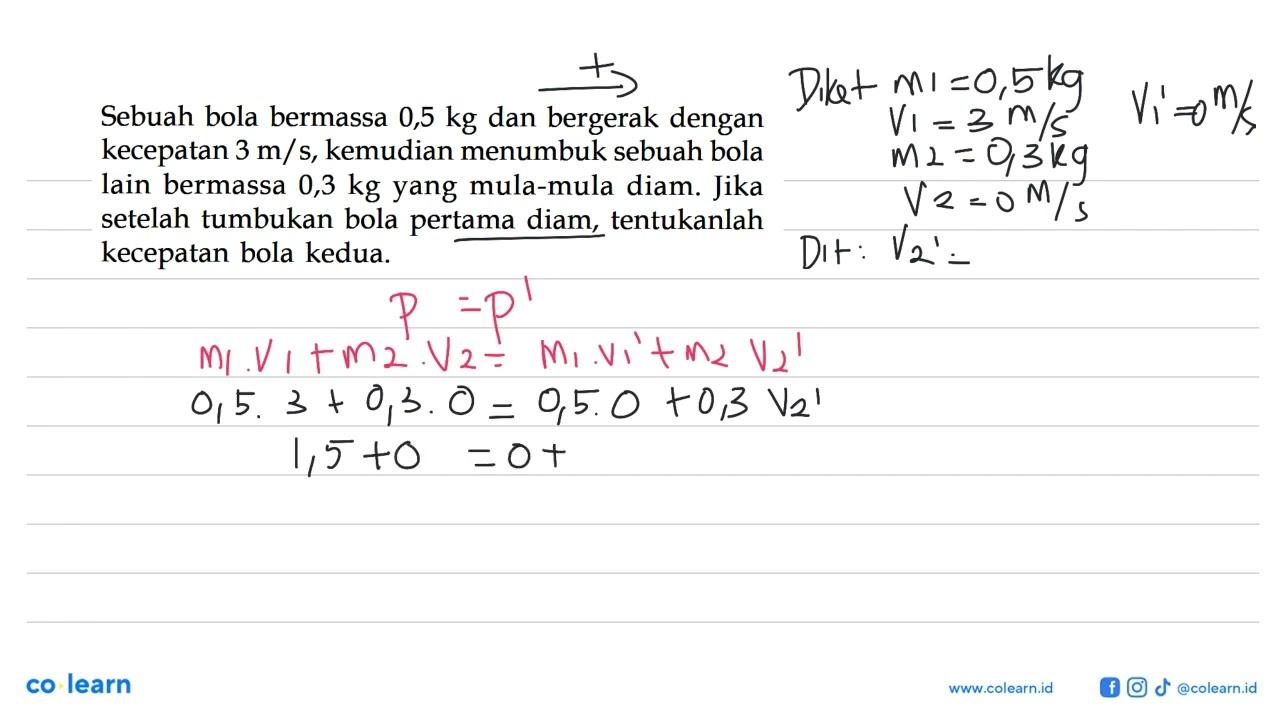 +
Sebuah bola bermassa 0,5 kg dan bergerak dengan
kecepatan 3 m/s, kemudian menumbuk sebuah bola
lain bermassa 0,3 kg yang mula-mula diam. Jika
setelah tumbukan bola pertama diam, tentukanlah
kecepatan bola kedua.
Diket m1 = 0,5 kg
V1 = 3 m/s
m2 = 0,3 kg
V2 = 0 m/s
V1' = 0 m/s
Dit: V2' =
P = P'
m1.V1 + m2.V2 = m1.V1' + m2 V2'
0,5. 3 + 0,3. 0 = 0,5.0 + 0,3 V2'
1,5 + 0 = 0 +
co learn
www.colearn.id
@colearn.id